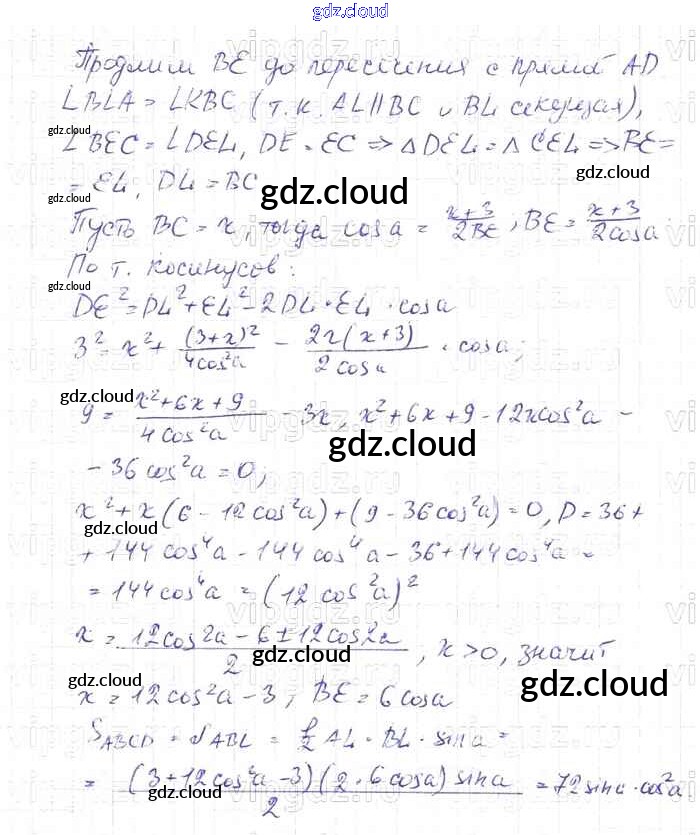 gdz.cloud
Продлим BE до пересечения с прямой AD
∠BLA = ∠KBC (т.к. AL || BC и BL секущая),
gdz.cloud
∠BEC = ∠DEL, DE = EC => △DEL = △CEL => BE =
= EL, DL = BC
gdz.cloud
gdz.cloud
Пусть BC = x, тогда cos a = (x+3)/(2BE); BE = (x+3)/(2cos a)
По т. косинусов:
gdz.cloud
DE² = DL² + EL² - 2DL · EL · cos a
3² = x² + (3+x)²/(4cos²a) - 2x(x+3)/(2cos a) · cos a;
gdz.cloud
9 = (x²+6x+9)/(4cos²a) - 3x, x²+6x+9-12xcos²a -
gdz.cloud
- 36cos²a = 0;
x² + x(6 - 12cos²a) + (9 - 36cos²a) = 0, D = 36 +
gdz.cloud
+ 144cos⁴a - 144cos⁴a - 36 + 144cos⁴a =
= 144cos⁴a = (12cos²a)²
x = (12cos2a - 6 ± 12cos2a)/2, x > 0, значит
gdz.cloud
gdz.cloud
x = 12cos²a - 3; BE = 6cos a
gdz.cloud
S_ABCD = S_ABL = 1/2 AL · BL · sin a =
= (3 + 12cos²a - 3)(2 · 6cos a)sin a/2 = 72sin a · cos²a
gdz.cloud
gdz.cloud